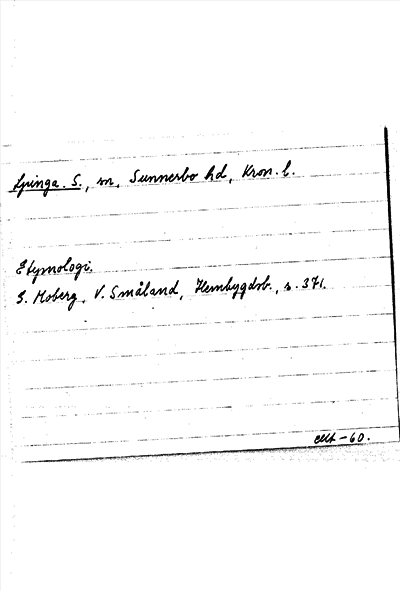 Ljunga. S., sn, Sunnerbo hd, Kron. l.
Etymologi.
S. Moberg, V. Småland, Hembygdsb., s. 371.
-60.